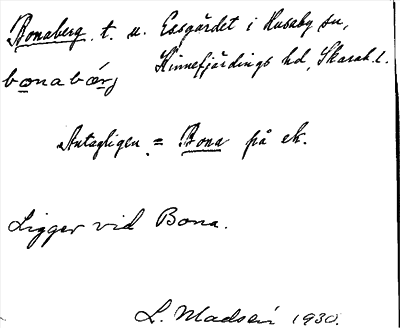 Bonaberg, t. u. Essgärdet i Husaby sn,
Kinnefjärdings hd, Skarab. l.
bonabärj
Antagligen = Bona på ek.
Ligger vid Bona.
L. Madsén 1930.